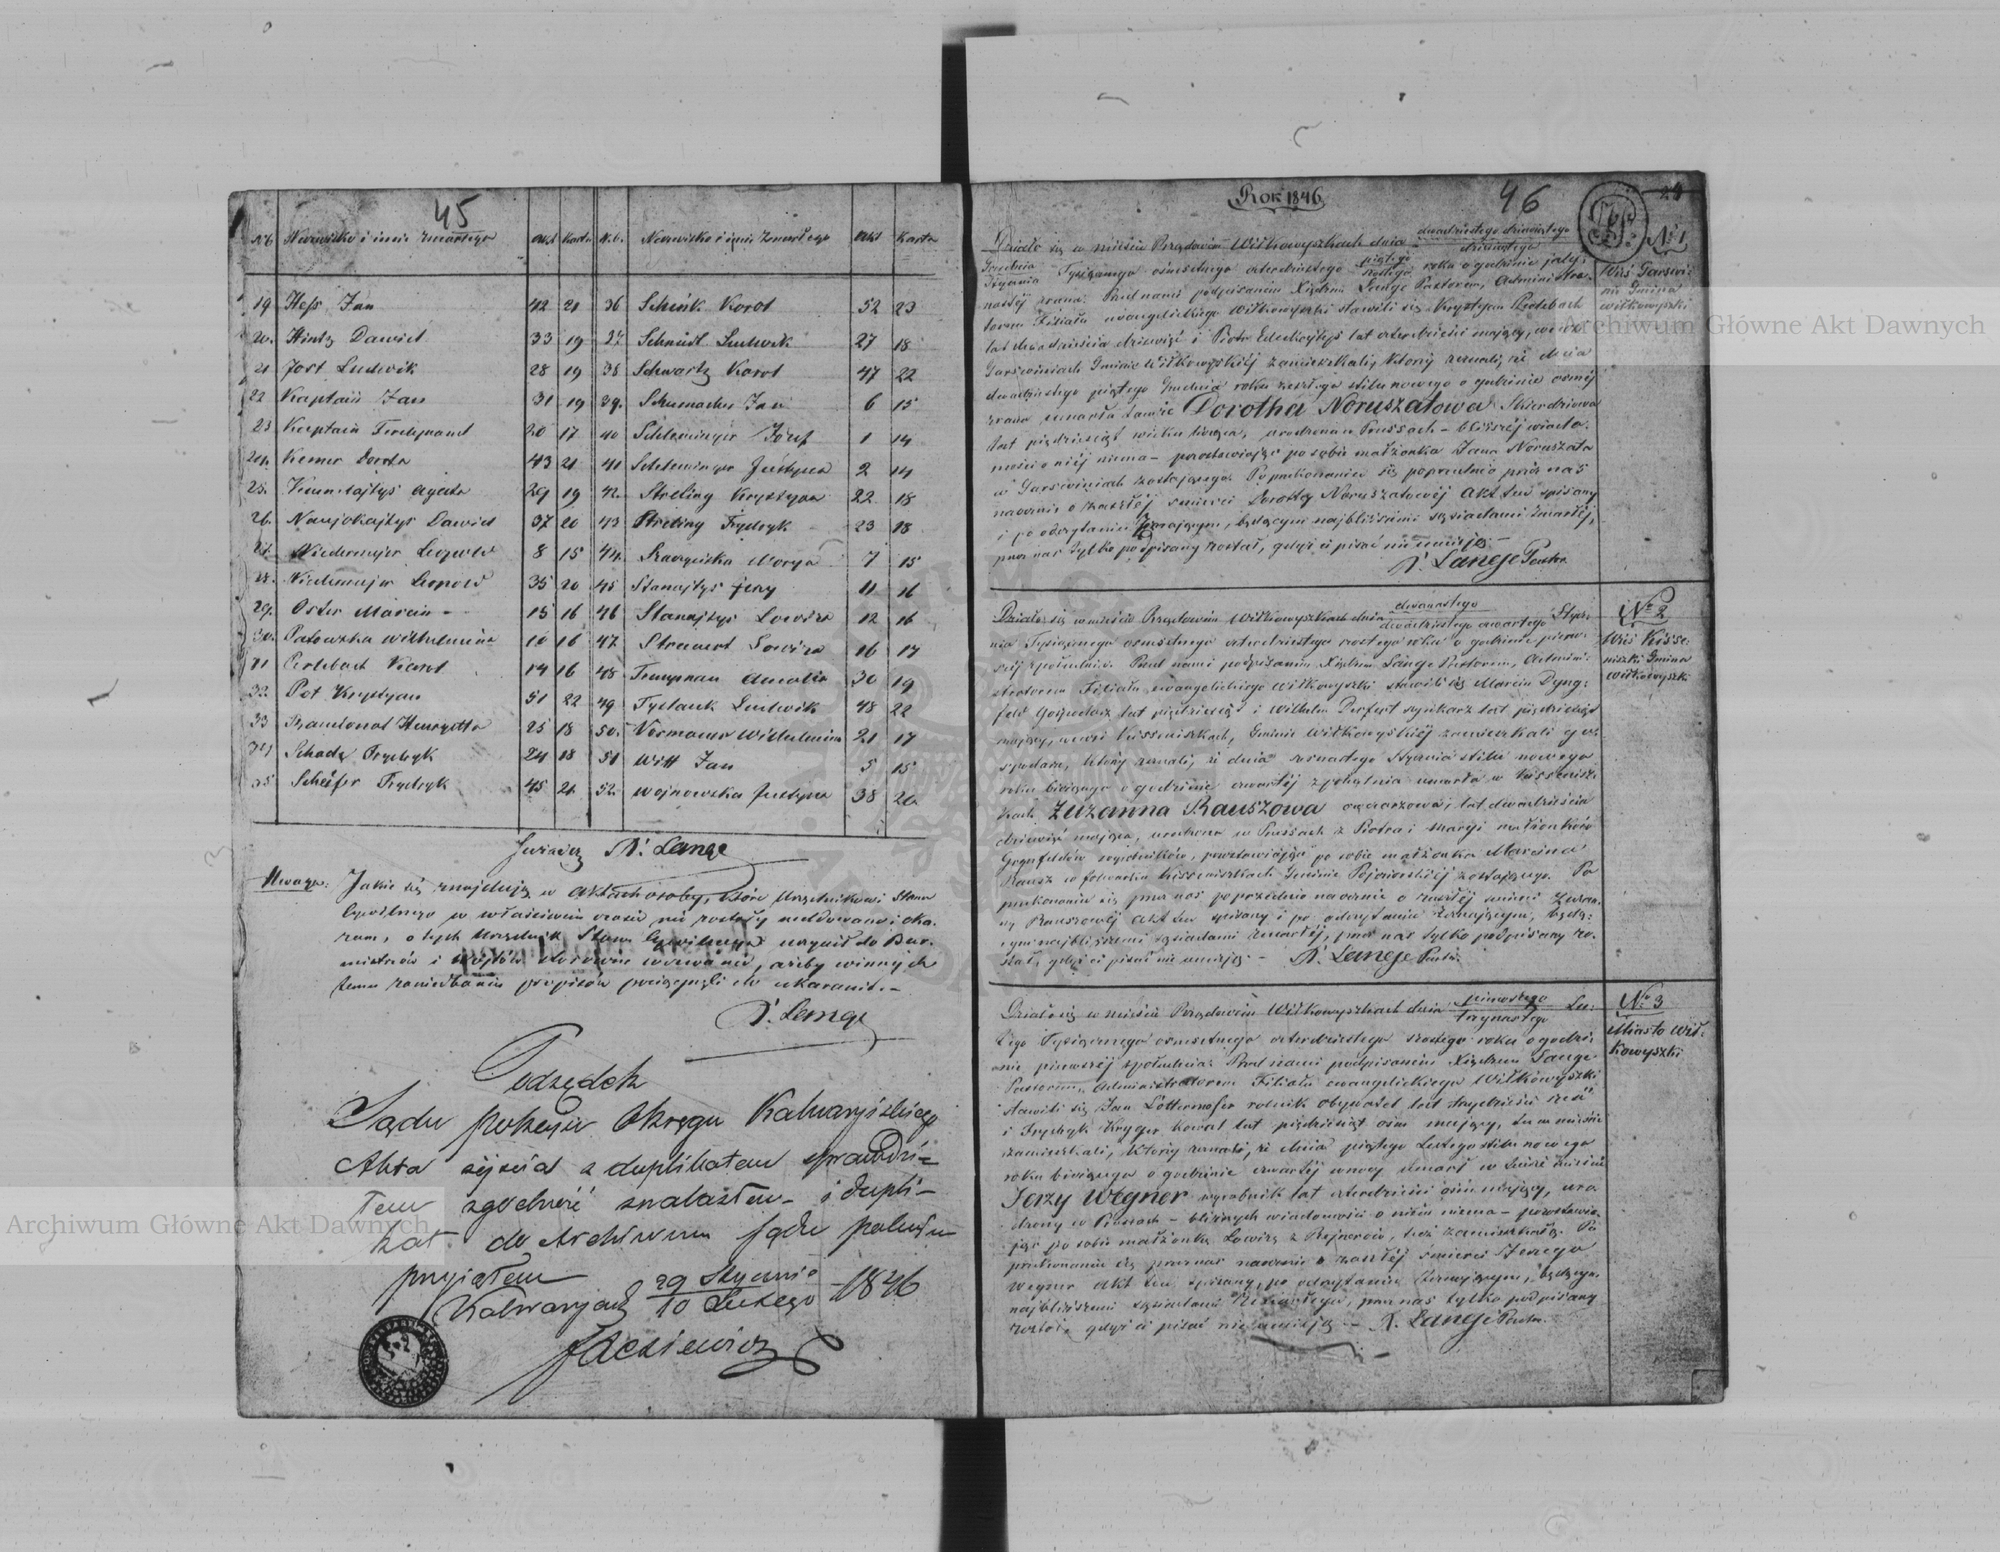 45
No Nazwisko i imie zmarłego Akt Karta N.o. Nazwisko i imie zmarłego Akt Karta
19 Hess Jan 42 21 36 Schenk Karol 52 23
20. Hintz Dawid 33 19 37 Schmidt Ludwik 27 18
21 Jort Ludwik 28 19 38 Schwartz Karol 47 22
22 Kaptain Jan 31 19 39. Schumacher Jan 6 15
23 Kaptain Ferdynand 20 17 40 Schleminger Józef 1 14
24. Kemer Dorota 43 21 41 Schleminger Justyna 2 14
25. Agata 29 19 42. Streling Krystyna 22 18
26. Naujokajtys Dawid 37 20 43 Streling Frydryk 23 18
27. Niedermejer 8 15 44. Marya 7 15
28. Niedermejer Leopold 35 20 45 Stanajtys Jerzy 11 16
29. Oster Marcin 15 16 46 Stanajtys Lowiza 12 16
30. Wilhelmina 10 16 47. Lowiza 16 17
31 Perlebach Karol 14 16 48. Trumpman Amalia 30 19
32. Pot Krystyan 51 22 49. Ludwik 48 22
33 Henryetta 25 18 50. Wilhelmina 21 17
34 Schade Frydryk 24 18 51 Witt Jan 5 15
35 Schefer Frydryk 45 21 52. Wojnowska Justyna 38 20
A. Lange
Uwaga: Jakie się znajdują w aktach osoby, które Urzędnikowi Stanu
Cywilnego w właściwem czasie nie zostały meldowane i oka-
zane, o tych Urzędnik Stanu Cywilnego uczynił do Bur-
mistrzów i Wójtów stosowne wezwanie, ażeby winnych
temu zaniedbaniu przepisów pociągnęli do ukarania.
A. Lange
Podsędek
Sądu pokoju Okręgu Kalwaryjskiego
Akta zejścia z duplikatem sprawdzi-
łem zgodność znalazłem - i dupli-
kat do Archiwum Sądu pokoju
przyjąłem
Kalwarya d. 29 Stycznia / 10 Lutego 1846
Jackiewicz
Rok 1846
46
No 1
Wieś Garświ-
nie Gmina
Wiłkowyszki
Działo się w mieście Rządowém Wiłkowyszkach dnia dwudziestego dziewiątego / dziesiątego
Grudnia / Stycznia Tysiącznego ośmsetnego czterdziestego piątego / szóstego roku o godzinie jedy-
nastej zrana. Przed nami podpisaném Xiędzem Lange Pastorem, Administra-
torem Filiału ewangelickiego Wiłkowyszki stawili się Krystyan Perlebach
lat dwadzieścia dziewięć i Piotr lat czterdzieści mający, we wsi
Garświniach Gminie Wiłkowyskiéj zamieszkali, którzy zeznali, iż dnia
dwudziestego piątego Grudnia roku zeszłego stilu nowego o godzinie ósméj
zrana umarła tamże Dorotha Noruszatowa
lat pięćdziesiąt wieku licząca, urodzona w Prussach - bliższéj wiado-
mości o niéj niema - pozostawiając po sobie małżonka Jana Noruszata
w Garświniach zostającego. Po przekonaniu się poprzednio przez nas
naocznie o zaszłéj śmierci Doroty Noruszatowéj Akt ten spisany
i po odczytaniu zeznającym, będącym najbliższémi sąsiadami zmarłéj,
przez nas tylko podpisany został, gdyż ci pisać nie umieją.
A. Lange Pastor.
No 2
Wieś Kisse-
niszki Gmina
Wiłkowyszki
Działo się w mieście Rządowém Wiłkowyszkach dnia dwunastego / dwudziestego czwartego Stycz-
nia Tysiącznego ośmsetnego czterdziestego szóstego roku o godzinie pierw-
széj zpołudnia. Przed nami podpisaném Xiędzem Lange Pastorem, Admini-
stratorem Filiału ewangelickiego Wiłkowyszki stawili się Marcin Dyng-
feld Gospodarz lat pięćdziesiąt i Wilhelm lat pięćdziesiąt
mający, we wsi Kisseniszkach, Gminie Wiłkowyskiéj zamieszkali go-
spodarze, którzy zeznali, iż dnia Stycznia stilu nowego
roku bieżącego o godzinie czwartéj z południa umarła w Kissenisz-
kach Zuzanna Rauszowa lat dwadzieścia
dziewięć mająca, urodzona w Prussach z Piotra i Maryi małżonków
pozostawiając po sobie małżonka Marcina
Rausz w folwarku Kisseniszkach Gminie zostającego. Po
przekonaniu się przez nas poprzednio naocznie o zaszłéj śmierci Zuzan-
ny Rauszowéj Akt ten spisany i po odczytaniu zeznającym, będą-
cym najbliższemi sąsiadami zmarłéj, przez nas tylko podpisany zo-
stał, gdyż ci pisać nie umieją. - A. Lange Pastor.
No 3
Miasto Wił-
kowyszki
Działo się w mieście Rządowém Wiłkowyszkach dnia pierwszego / trzynastego Lu-
tego Tysiącznego ośmsetnego czterdziestego szóstego roku o godzi-
nie pierwszéj zpołudnia. Przed nami podpisaném Xiędzem Lange
Pastorem, Administratorem Filiału ewangelickiego Wiłkowyszki
stawili się Jan Lottermoser rolnik obywatel lat trzydzieści sześć
i Frydryk Kryger kowal lat pięćdziesiąt ośm mający, tu w mieście
zamieszkali, którzy zeznali, iż dnia piątego Lutego stilu nowego
roku bieżącego o godzinie czwartéj umarł w mieście
Jerzy Wegner wyrobnik lat czterdzieści ośm mający, uro-
dzony w Prussach - bliższych wiadomości o nim niema - pozostawia-
jąc po sobie małżonkę Lowizę z Rejnerów, też zamieszkałą. Po
przekonaniu się przez nas naocznie o zaszłéj śmierci Jerzego
Wegner Akt ten spisany, po odczytaniu zeznającym, będącym
najbliższemi sąsiadami zmarłego, przez nas tylko podpisany
został, gdyż ci pisać nie umieją. - A. Lange Pastor.
Archiwum Główne Akt Dawnych
Archiwum Główne Akt Dawnych